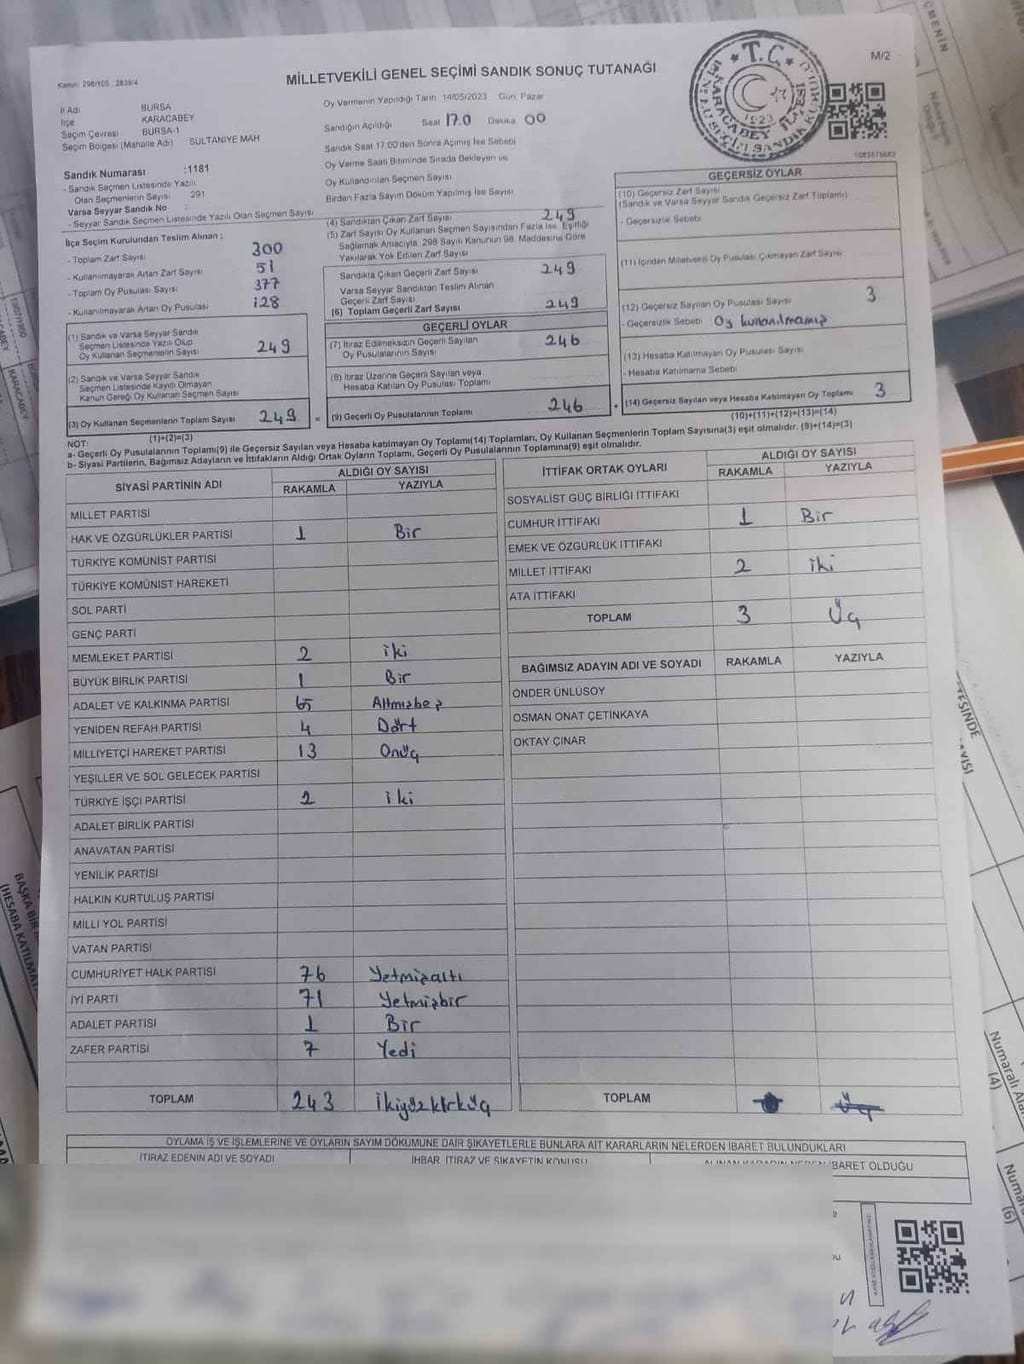 Kanun: 298/105 , 2839/4
MİLLETVEKİLİ GENEL SEÇİMİ SANDIK SONUÇ TUTANAĞI
M/2
İl Adı BURSA
İlçe KARACABEY
Seçim Çevresi BURSA-1
Seçim Bölgesi (Mahalle Adı) SULTANİYE MAH
Sandık Numarası :1181
- Sandık Seçmen Listesinde Yazılı
Olan Seçmenlerin Sayısı 291
Varsa Seyyar Sandık No :
- Seyyar Sandık Seçmen Listesinde Yazılı Olan Seçmen Sayısı
Oy Vermenin Yapıldığı Tarih 14/05/2023 Gün Pazar
Sandığın Açıldığı Saat 17.0 Dakika 00
Sandık Saat 17:00'den Sonra Açılmış İse Sebebi
Oy Verme Saati Bitiminde Sırada Bekleyen ve
Oy Kullandırılan Seçmen Sayısı
Birden Fazla Sayım Döküm Yapılmış İse Sayısı
T.C.
KARACABEY
1923
İlçe Seçim Kurulundan Teslim Alınan ;
- Toplam Zarf Sayısı 300
- Kullanılmayarak Artan Zarf Sayısı 51
- Toplam Oy Pusulası Sayısı 377
- Kullanılmayarak Artan Oy Pusulası 128
(1) Sandık ve Varsa Seyyar Sandık
Seçmen Listesinde Yazılı Olup
Oy Kullanan Seçmenlerin Sayısı 249
(2) Sandık ve Varsa Seyyar Sandık
Seçmen Listesinde Kayıtlı Olmayan
Kanun Gereği Oy Kullanan Seçmen Sayısı
(3) Oy Kullanan Seçmenlerin Toplam Sayısı 249 =
(1)+(2)=(3)
(4) Sandıktan Çıkan Zarf Sayısı 249
(5) Zarf Sayısı Oy Kullanan Seçmen Sayısından Fazla İse, Eşitliği
Sağlamak Amacıyla, 298 Sayılı Kanunun 98. Maddesine Göre
Yakılarak Yok Edilen Zarf Sayısı
Sandıkta Çıkan Geçerli Zarf Sayısı 249
Varsa Seyyar Sandıktan Teslim Alınan
Geçerli Zarf Sayısı
(6) Toplam Geçerli Zarf Sayısı 249
GEÇERLİ OYLAR
(7) İtiraz Edilmeksizin Geçerli Sayılan
Oy Pusulalarının Sayısı 246
(8) İtiraz Üzerine Geçerli Sayılan veya
Hesaba Katılan Oy Pusulası Toplamı
(9) Geçerli Oy Pusulalarının Toplamı 246 +
GEÇERSİZ OYLAR
(10) Geçersiz Zarf Sayısı
(Sandık ve Varsa Seyyar Sandık Geçersiz Zarf Toplamı)
- Geçersizlik Sebebi
(11) İçinden Milletvekili Oy Pusulası Çıkmayan Zarf Sayısı
(12) Geçersiz Sayılan Oy Pusulası Sayısı 3
- Geçersizlik Sebebi Oy kullanılmamış
(13) Hesaba Katılmayan Oy Pusulası Sayısı
- Hesaba Katılmama Sebebi
(14) Geçersiz Sayılan veya Hesaba Katılmayan Oy Toplamı 3
(10)+(11)+(12)+(13)=(14)
NOT:
a- Geçerli Oy Pusulalarının Toplamı(9) ile Geçersiz Sayılan veya Hesaba katılmayan Oy Toplamı(14) Toplamları, Oy Kullanan Seçmenlerin Toplam Sayısına(3) eşit olmalıdır. (9)+(14)=(3)
b- Siyasi Partilerin, Bağımsız Adayların ve İttifakların Aldığı Ortak Oyların Toplamı, Geçerli Oy Pusulalarının Toplamına(9) eşit olmalıdır.
SİYASİ PARTİNİN ADI ALDIĞI OY SAYISI
RAKAMLA YAZIYLA
MİLLET PARTİSİ
HAK VE ÖZGÜRLÜKLER PARTİSİ 1 Bir
TÜRKİYE KOMÜNİST PARTİSİ
TÜRKİYE KOMÜNİST HAREKETİ
SOL PARTİ
GENÇ PARTİ
MEMLEKET PARTİSİ 2 iki
BÜYÜK BİRLİK PARTİSİ 1 Bir
ADALET VE KALKINMA PARTİSİ 65 Altmışbeş
YENİDEN REFAH PARTİSİ 4 Dört
MİLLİYETÇİ HAREKET PARTİSİ 13 Onüç
YEŞİLLER VE SOL GELECEK PARTİSİ
TÜRKİYE İŞÇİ PARTİSİ 2 iki
ADALET BİRLİK PARTİSİ
ANAVATAN PARTİSİ
YENİLİK PARTİSİ
HALKIN KURTULUŞ PARTİSİ
MİLLİ YOL PARTİSİ
VATAN PARTİSİ
CUMHURİYET HALK PARTİSİ 76 Yetmişaltı
İYİ PARTİ 71 Yetmişbir
ADALET PARTİSİ 1 Bir
ZAFER PARTİSİ 7 Yedi
TOPLAM 243 ikiyüzkırküç
İTTİFAK ORTAK OYLARI ALDIĞI OY SAYISI
RAKAMLA YAZIYLA
SOSYALİST GÜÇ BİRLİĞİ İTTİFAKI
CUMHUR İTTİFAKI 1 Bir
EMEK VE ÖZGÜRLÜK İTTİFAKI
MİLLET İTTİFAKI 2 iki
ATA İTTİFAKI
TOPLAM 3 Üç
BAĞIMSIZ ADAYIN ADI VE SOYADI RAKAMLA YAZIYLA
ÖNDER ÜNLÜSOY
OSMAN ONAT ÇETİNKAYA
OKTAY ÇINAR
TOPLAM Üç
OYLAMA İŞ VE İŞLEMLERİNE VE OYLARIN SAYIM DÖKÜMÜNE DAİR ŞİKAYETLERLE BUNLARA AİT KARARLARIN NELERDEN İBARET BULUNDUKLARI
İTİRAZ EDENİN ADI VE SOYADI İHBAR, İTİRAZ VE ŞİKAYETİN KONUSU ALINAN KARARIN NEDEN İBARET OLDUĞU
BAŞKA BİR
(HESABA KATILMA
Numaralı Ala
(4)
Numara
(6)